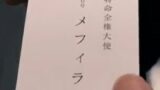 特命全権大使
メフィラ